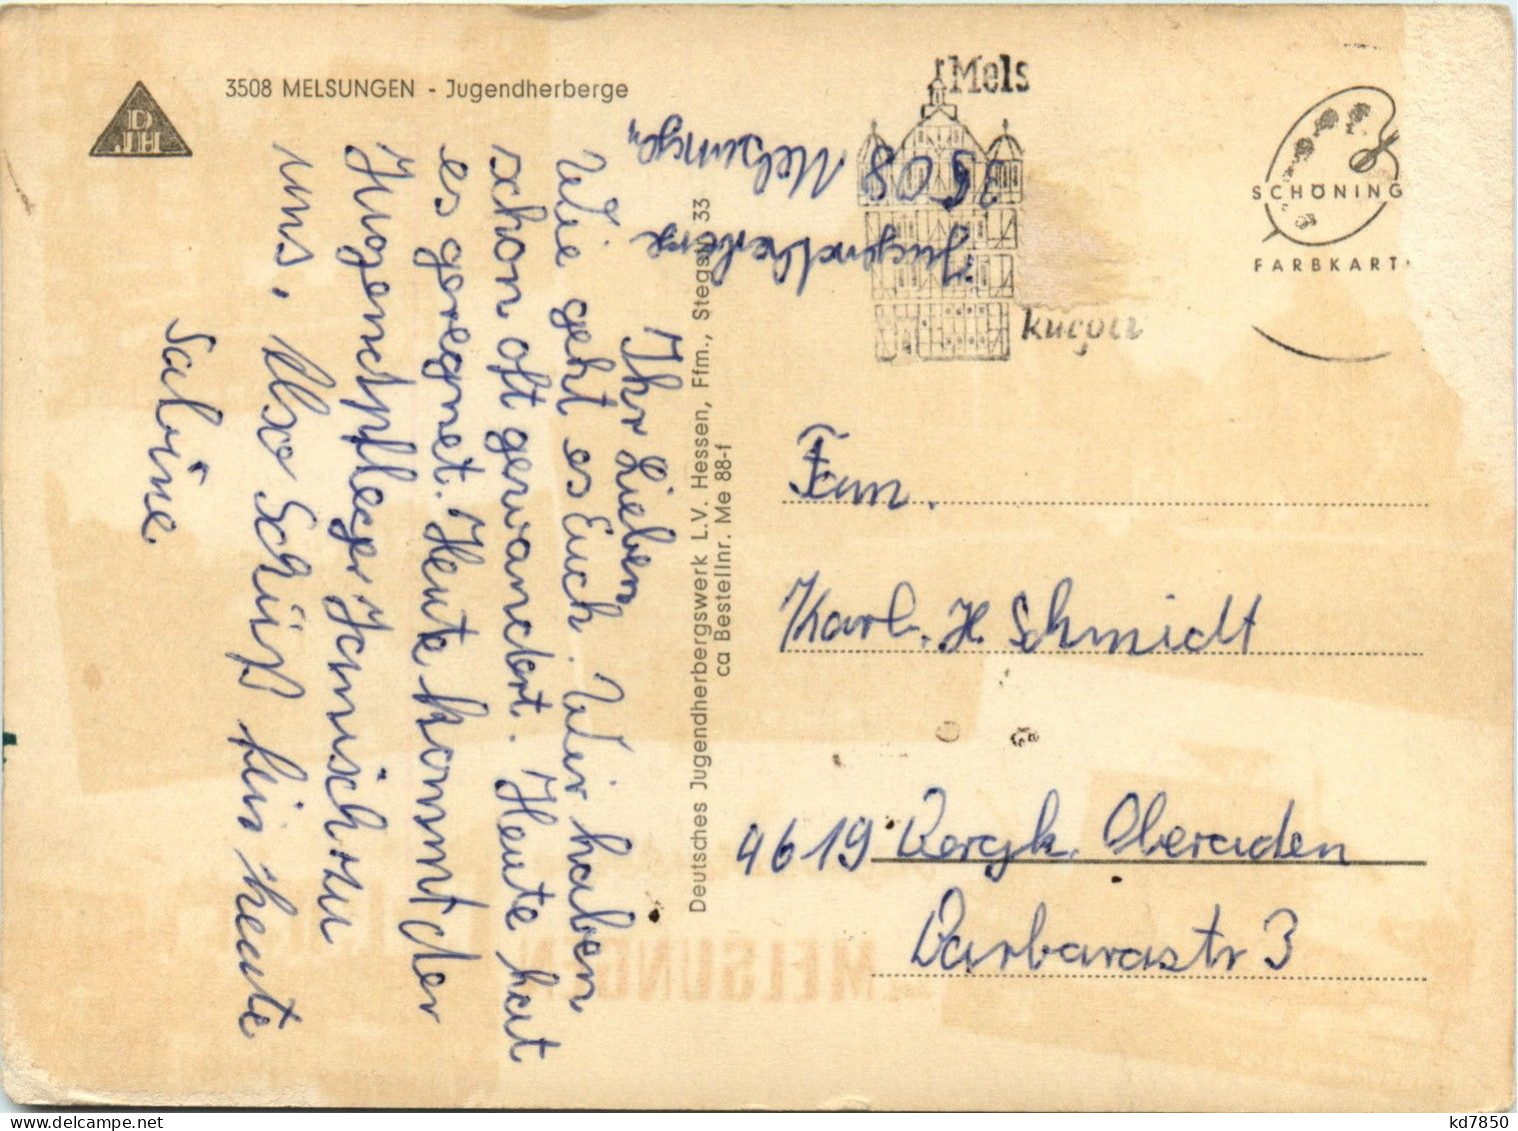 3508 MELSUNGEN - Jugendherberge
D
JH
Mels
kurort
SCHÖNING
FARBKART
Jugendherberge
3508 Melsungen
Ihr Lieben
Wie geht es Euch. Wir haben
schon oft gewandert. Heute hat
es geregnet. Heute kommt der
Jugendpfleger Janisch zu
uns. Also Schüß bis heute
Sabine.
Deutsches Jugendherbergswerk L.V. Hessen, Ffm., Stegstr. 33
ca Bestellnr. Me 88-f
Fam.
Karl. H. Schmidt
4619 Bergk. Oberaden
Barbarastr 3
MELSUNGEN
kd7850